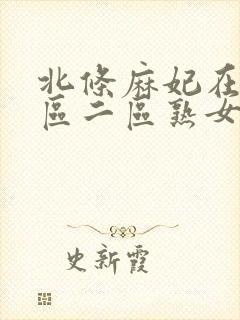 北條麻妃在
區二區熟女
史新霞